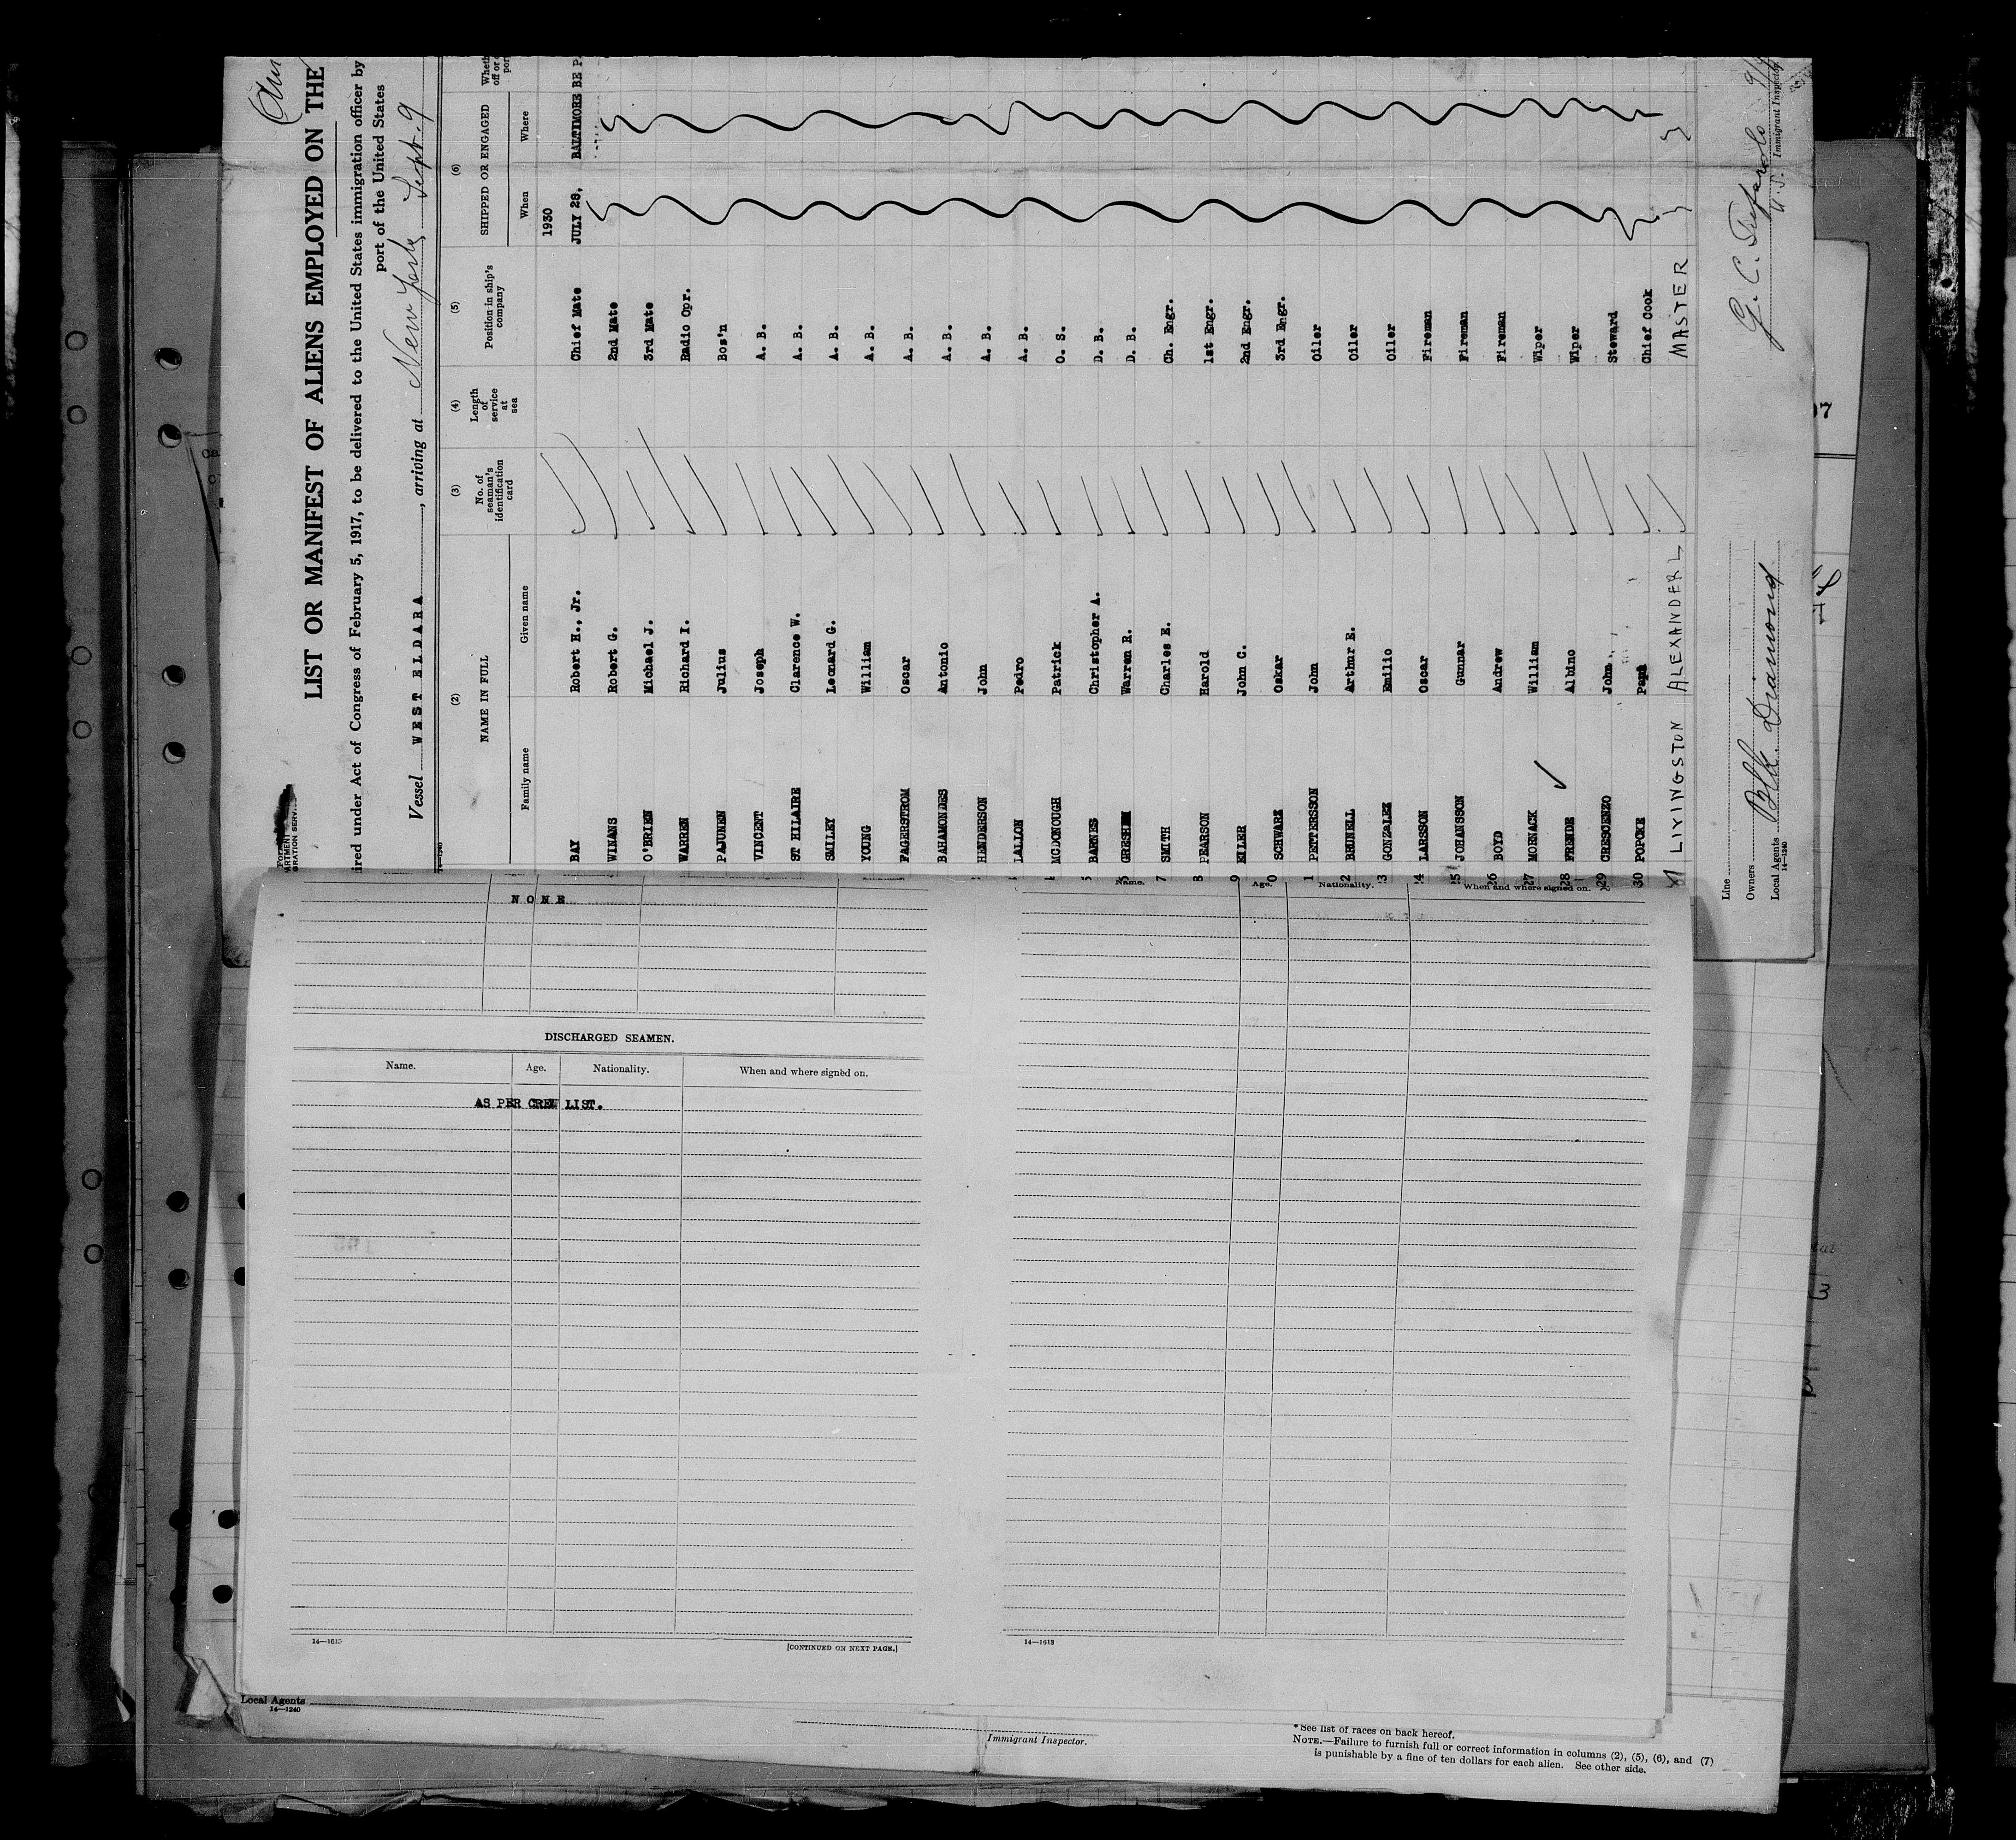 LIST OR MANIFEST OF ALIENS EMPLOYED ON THE
ired under Act of Congress of February 5, 1917, to be delivered to the United States immigration officer by
port of the United States
Vessel WEST ELDARA, arriving at New York Sept. 9
(2) (3) (4) (5) (6)
NAME IN FULL No. of seaman's identification card Length of service at sea Position in ship's company SHIPPED OR ENGAGED
Family name Given name When Where
1930
BAY Robert H., Jr. Chief Mate JULY 28, BALTIMORE
WINANS Robert G. 2nd Mate
O'BRIEN Michael J. 3rd Mate
WARREN Richard I. Radio Opr.
PAJUNEN Julius Bos'n
VINCENT Joseph A. B.
ST HILAIRE Clarence W. A. B.
SMILEY Leonard G. A. B.
YOUNG William A. B.
FAGERSTROM Oscar A. B.
BAHAMONDES Antonio A. B.
HENDERSON John A. B.
LALLON Pedro A. B.
McDONOUGH Patrick O. S.
BARNES Christopher A. D. B.
GRESHAM Warren R. D. B.
7 SMITH Charles E. Ch. Engr.
8 PEARSON Harold 1st Engr.
9 EILER John C. 2nd Engr.
0 SCHWARZ Oskar 3rd Engr.
1 PETTERSSON John Oiler
2 BRUNELL Arthur E. Oiler
3 GONZALEZ Emilio Oiler
24 LARSSON Oscar Fireman
25 JOHANSSON Gunnar Fireman
26 BOYD Andrew Fireman
27 MORNACK William Wiper
28 FRENDE Albino Wiper
29 CRESCENZO John Steward
30 POPCKE Chief Cook
LIVINGSTON ALEXANDER L MASTER
Line
Owners Blk Diamond
Local Agents
14—1240
U. S. Immigrant Inspector.
NONE
DISCHARGED SEAMEN.
Name. Age. Nationality. When and where signed on.
AS PER CREW LIST.
14—1613
[CONTINUED ON NEXT PAGE.]
Name. Age. Nationality. When and where signed on.
14—1613
Local Agents
14—1240
Immigrant Inspector.
* See list of races on back hereof.
NOTE.—Failure to furnish full or correct information in columns (2), (5), (6), and (7)
is punishable by a fine of ten dollars for each alien. See other side.